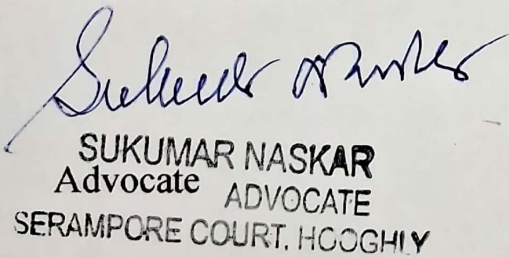 Sukumar Naskar
SUKUMAR NASKAR
Advocate ADVOCATE
SERAMPORE COURT, HOOGHLY